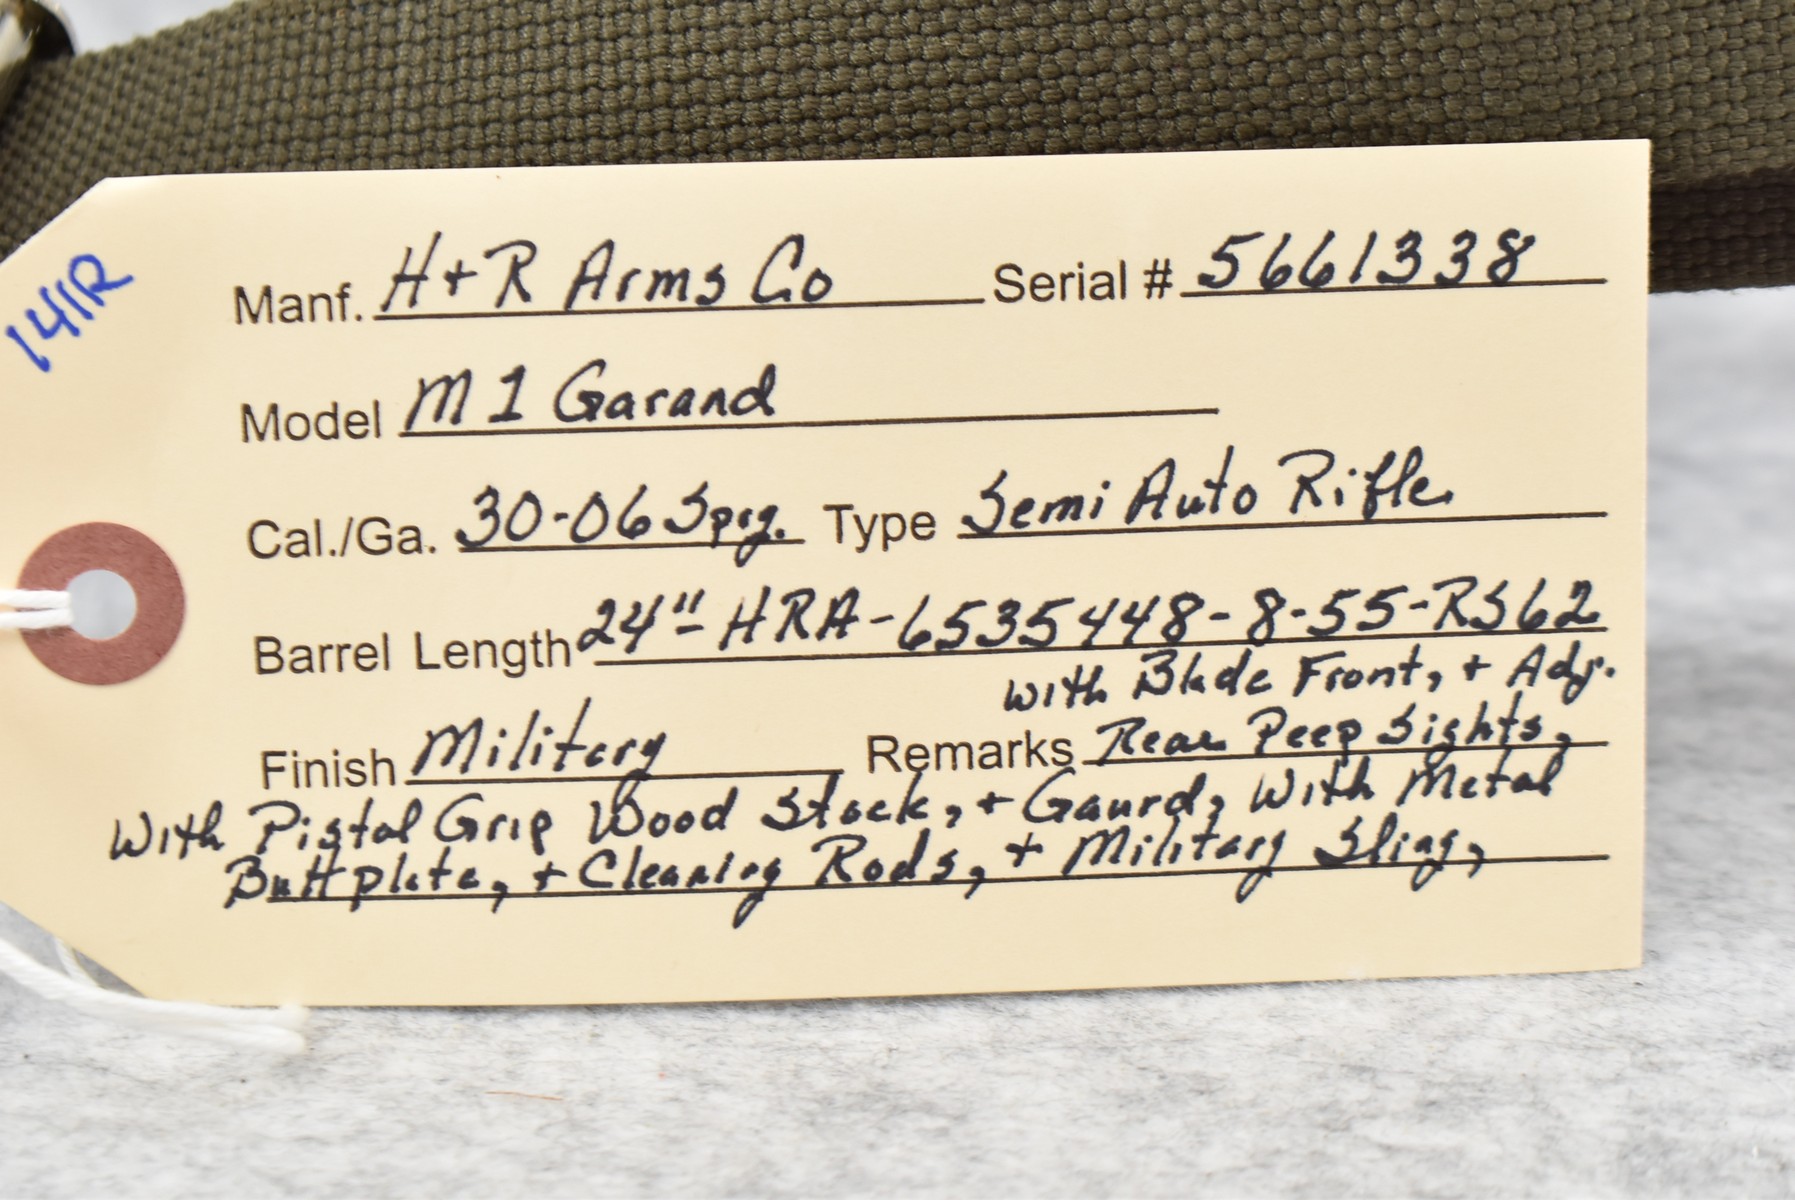 141R
Manf. H+R Arms Co Serial # 5661338
Model M1 Garand
Cal./Ga. 30-06 Sprg. Type Semi Auto Rifle
Barrel Length 24"-HRA-6535448-8-55-RS62
with Blade Front, + Adj.
Finish Military Remarks Rear Peep Sights,
With Pistol Grip Wood Stock, + Gaurd, With Metal
Buttplate, + Cleaning Rods, + Military Sling,